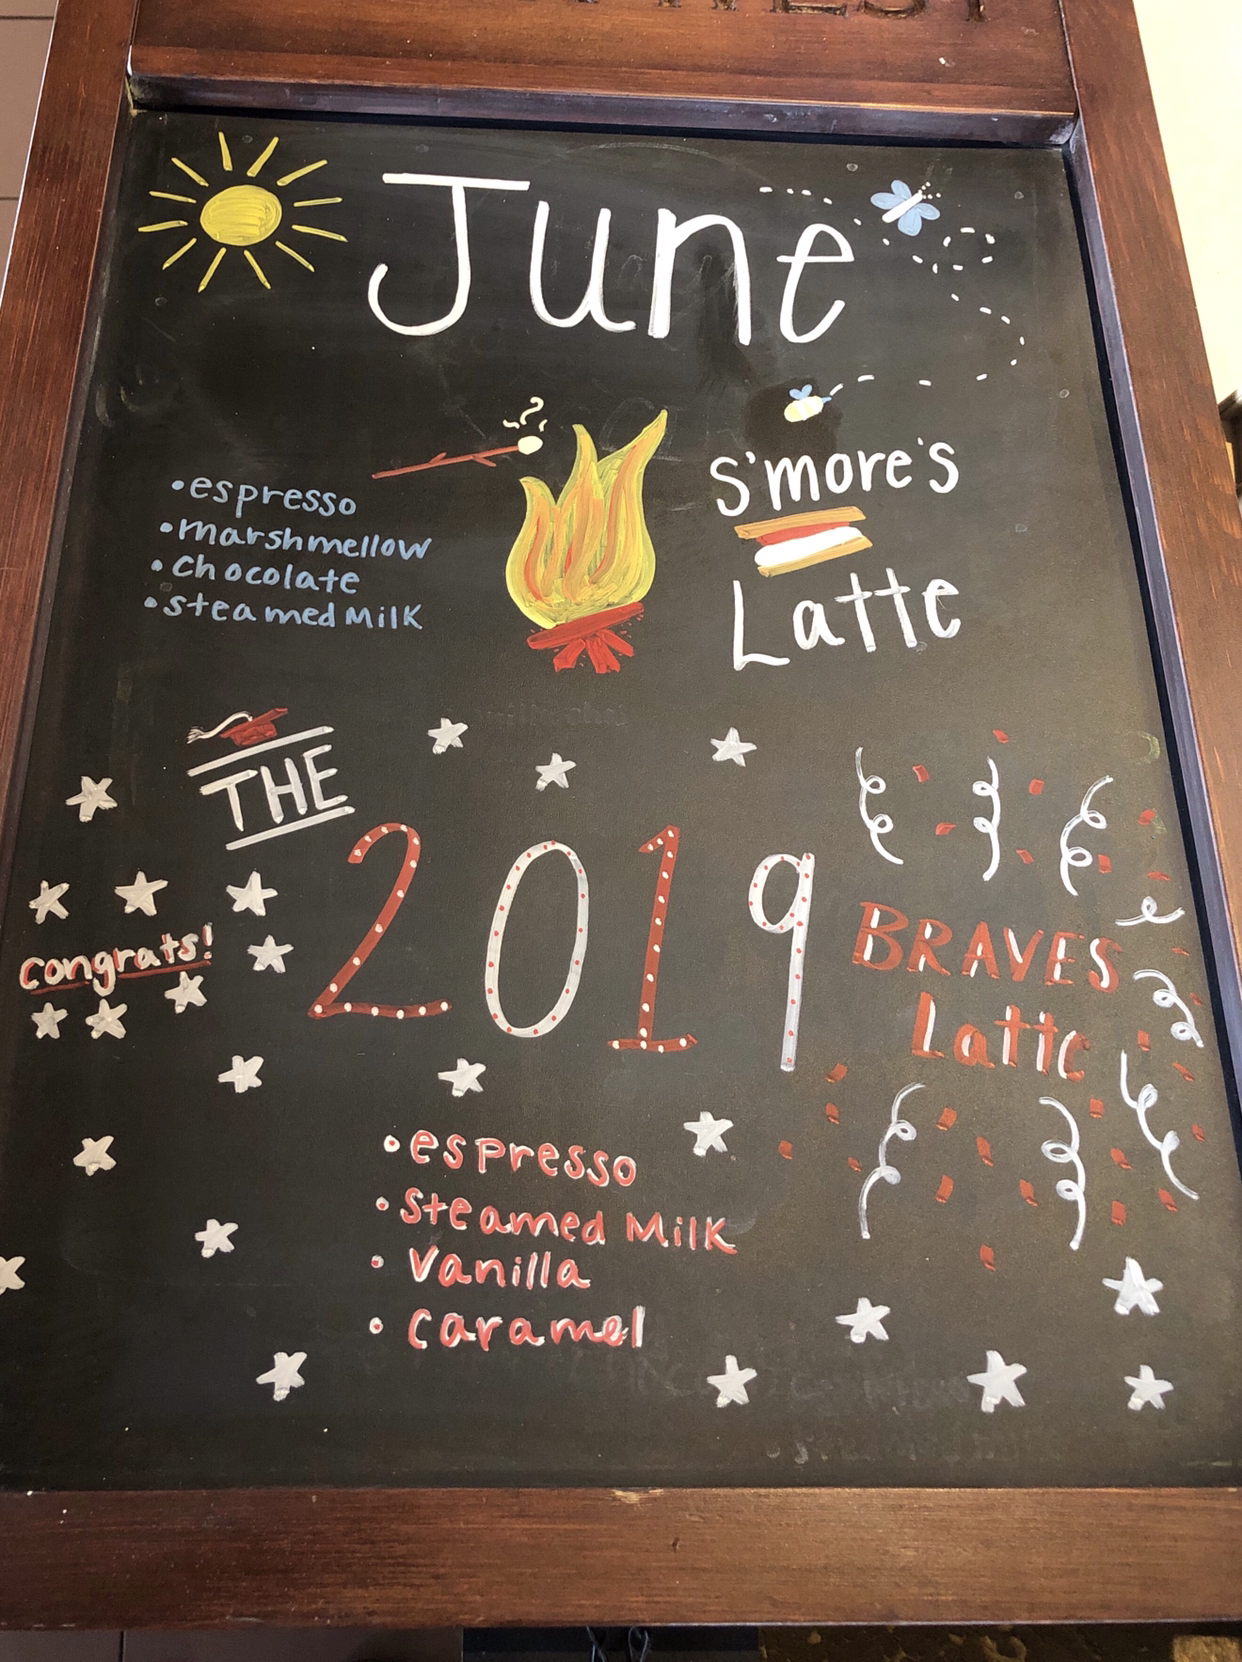 June
• espresso
• marshmellow
• chocolate
• steamed Milk
S'more's
Latte
THE
2019
BRAVES
Latte
congrats!
• espresso
• steamed Milk
• Vanilla
• caramel